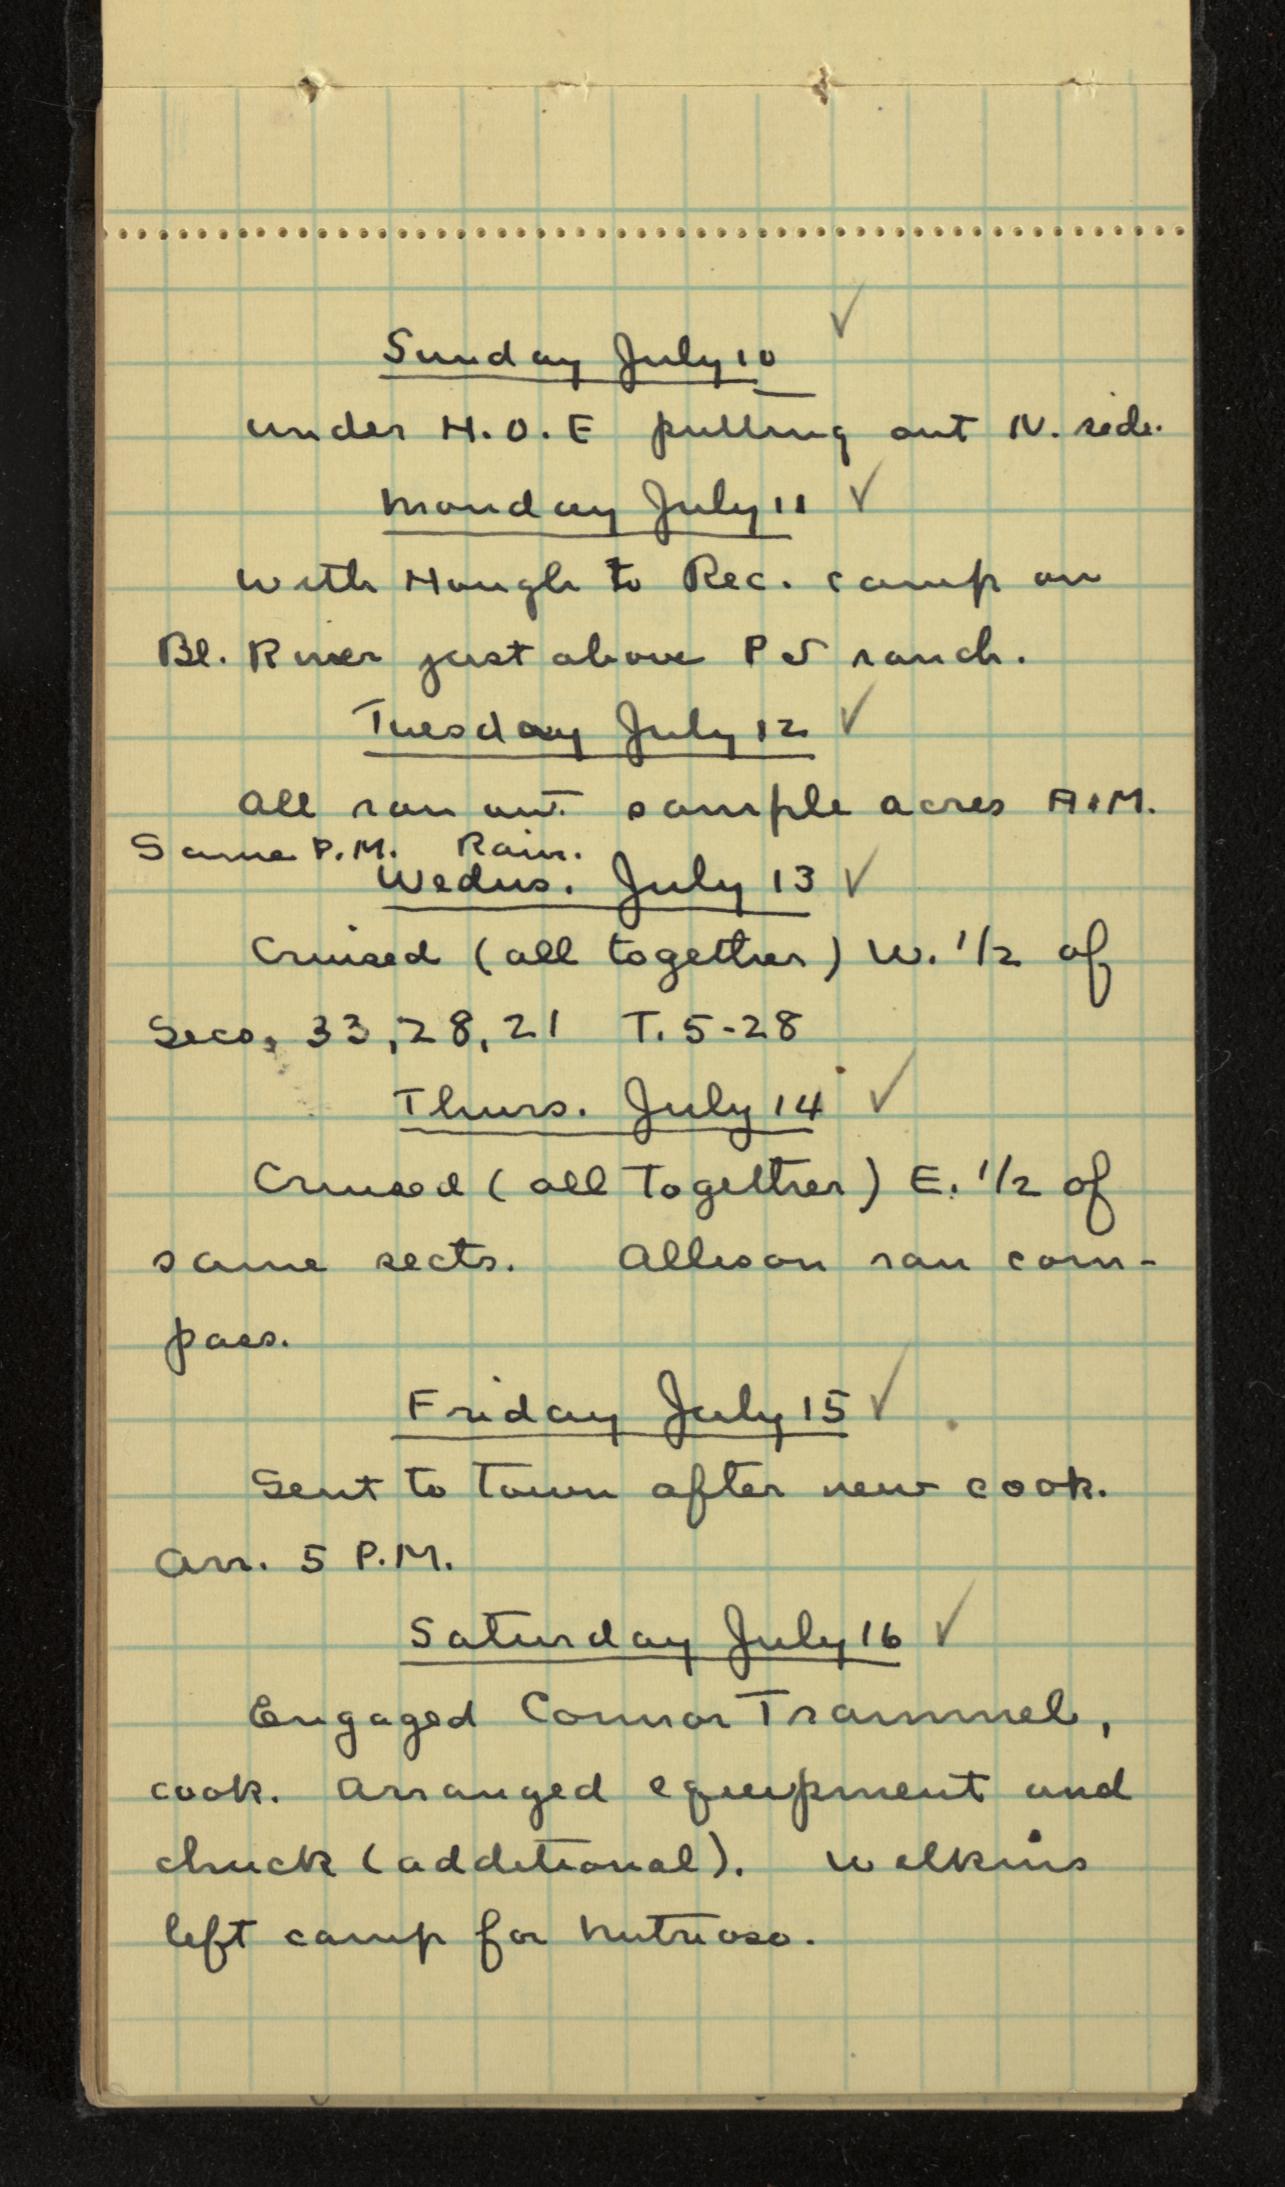 Sunday July 10 ✓
under H.O.E pulling out N. side.
Monday July 11 ✓
With Hough to Rec. camp on
Bl. River just above P S ranch.
Tuesday July 12 ✓
All ran out sample acres A.M.
Same P.M. Rain.
Wedns. July 13 ✓
Cruised (all together) W. 1/2 of
Secs, 33, 28, 21 T. 5-28
Thurs. July 14 ✓
Cruised (all Together) E. 1/2 of
same sects. Allison ran com-
pass.
Friday July 15 ✓
Sent to Town after new cook.
Arr. 5 P.M.
Saturday July 16 ✓
Engaged Connor Trammel,
cook. Arranged equipment and
chuck (additional). Wilkins
left camp for Nutrioso.